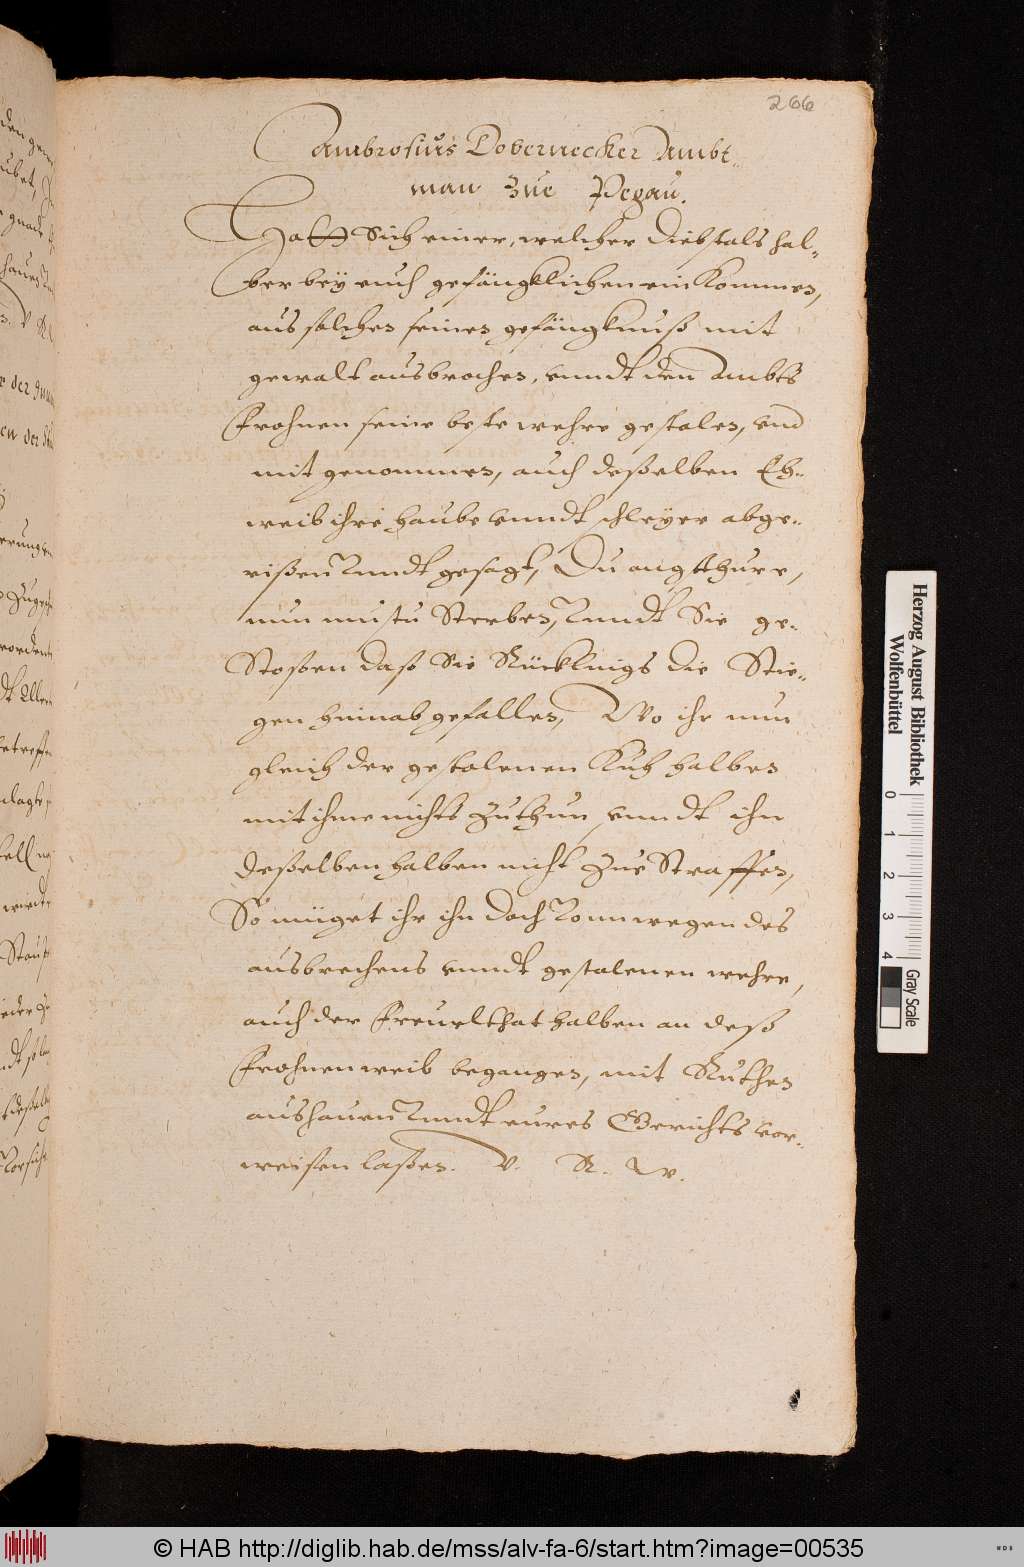 266
Ambrosius Dobernecker Ambt-
man zue Pegau.
Hatt Sich einer, welcher Diebstals hal-
ber bey euch gefängklichen ein kommen,
aus solchen seinen gefängknuß mit
gewalt ausbrochen, vnndt den Ambts
Frohnen seine beste wehre gestolen, vnd
mit genommen, auch deßelben Eh-
weib ihre haube vnndt schleyer abge-
rißen vnndt gesagt, Du hure,
nun mustu Sterben, vnndt Sie ge-
Stoßen daß Sie Rücklings die Stie-
gen hinnab gefallen, Wo ihr nun
gleich der gestolenen Kuh halben
mit ihme nichts zuthun, vnndt ihn
deßelben halben nicht zue Straffen,
So müget ihr ihn doch vonn wegen des
ausbrechens vnndt gestolenen wehre,
auch der Freuelthat halben an deß
Frohnen weib begangen, mit Ruthen
aushauen vnndt eures Gerichts vor-
weisen laßen. V. R. W.
Herzog August Bibliothek
Wolfenbüttel
0 1 2 3 4
Gray Scale
© HAB http://diglib.hab.de/mss/alv-fa-6/start.htm?image=00535